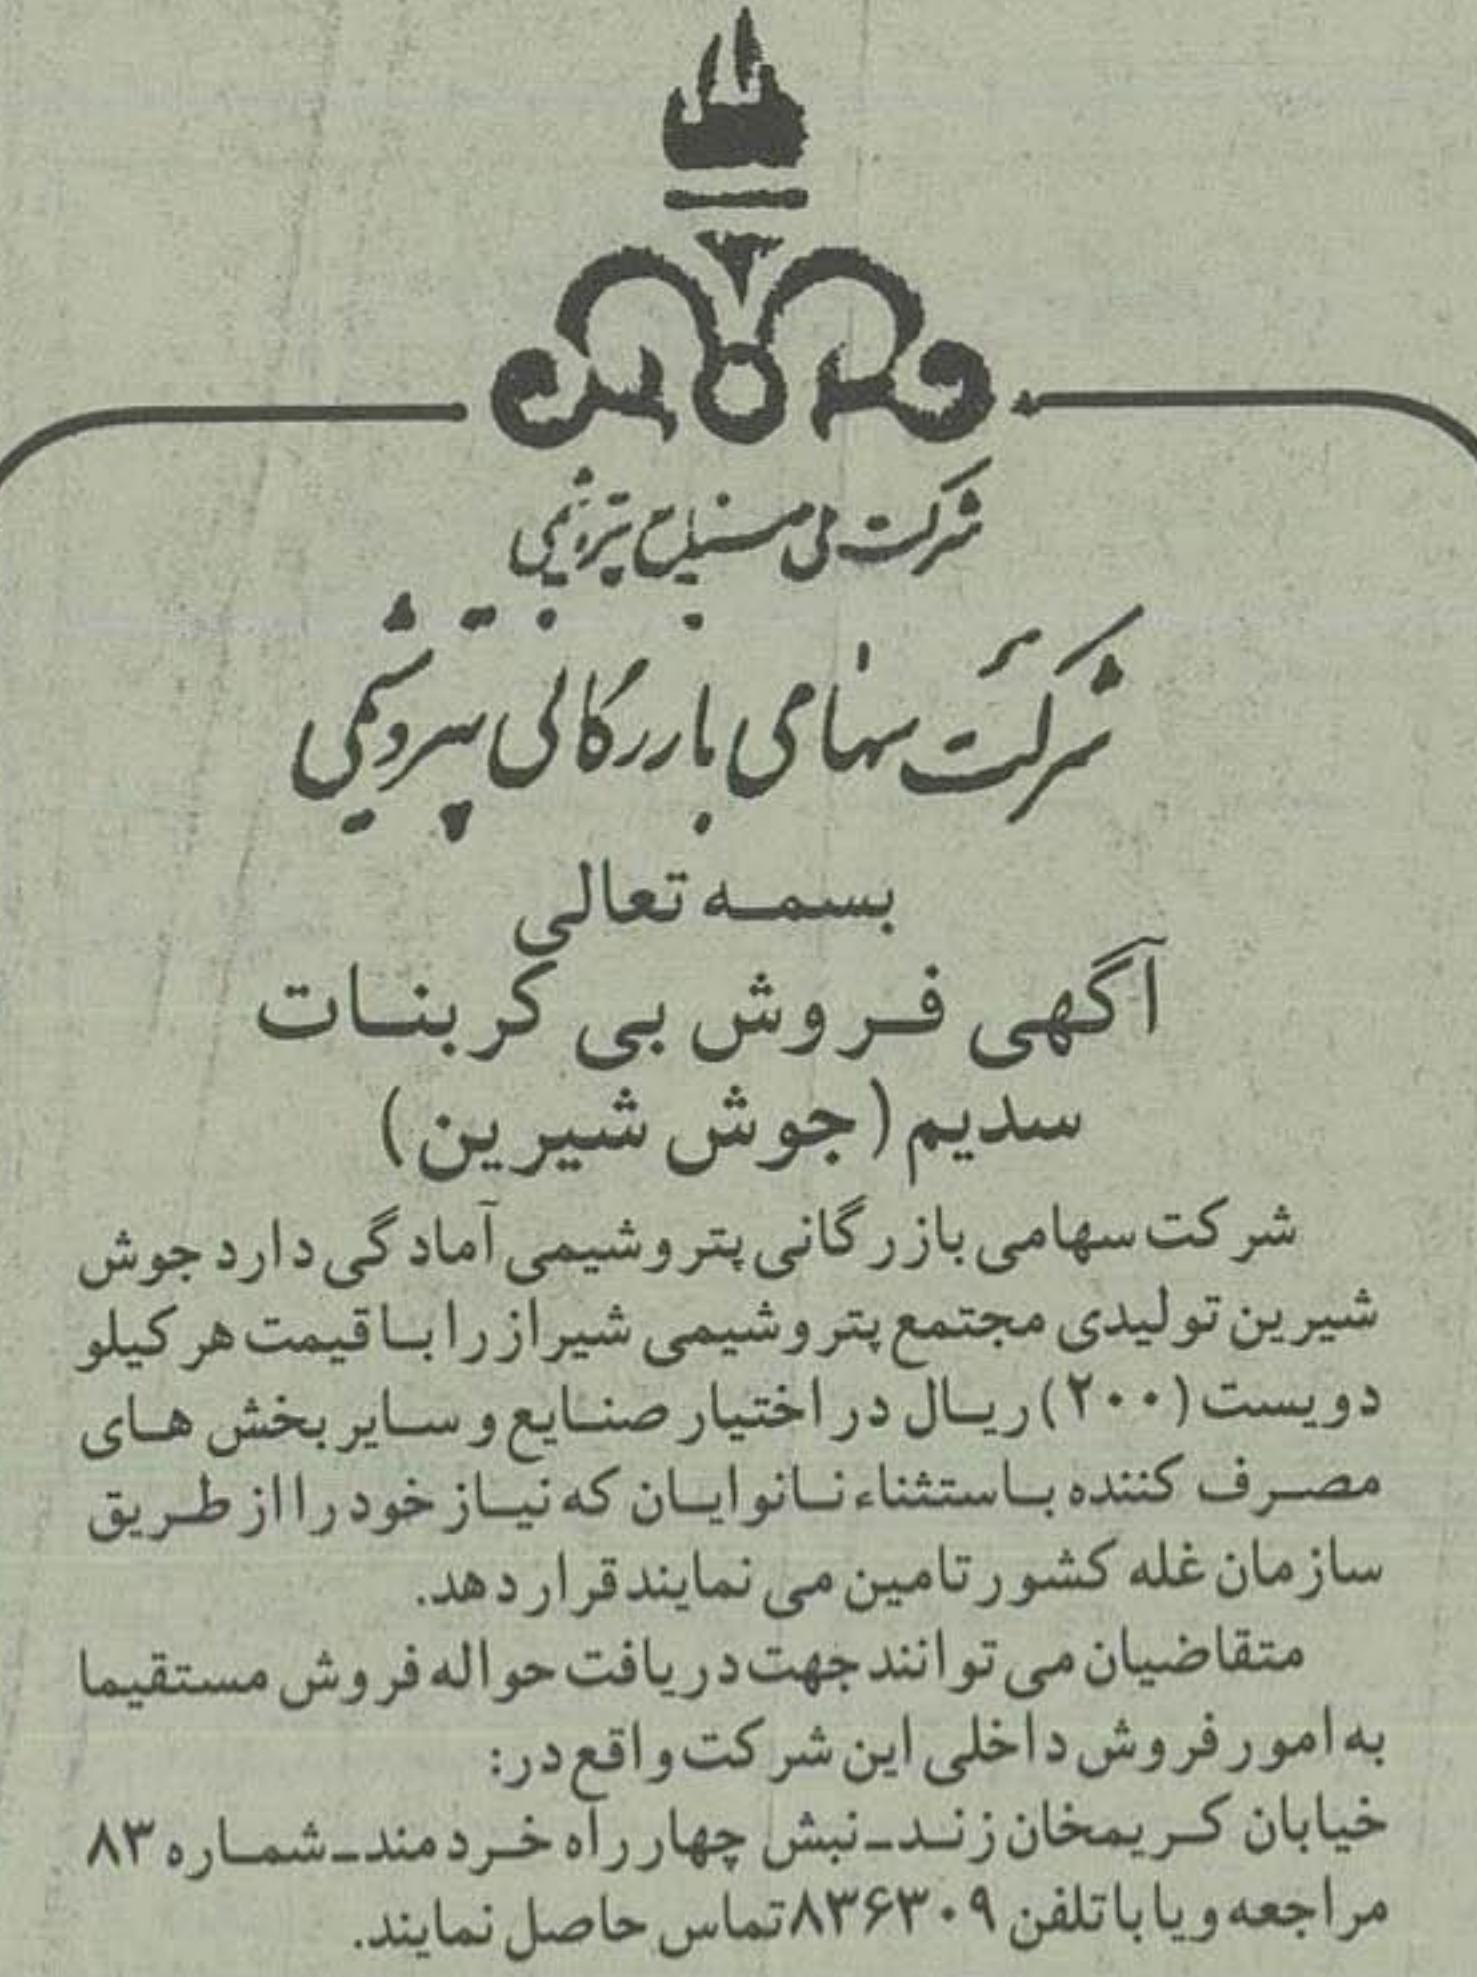 شرکت ملی صنایع پتروشیمی
شرکت سهامی بازرگانی پتروشیمی
بسمه تعالی
آگهی فروش بی کربنات
سدیم (جوش شیرین)
شرکت سهامی بازرگانی پتروشیمی آمادگی دارد جوش
شیرین تولیدی مجتمع پتروشیمی شیراز را با قیمت هر کیلو
دویست (۲۰۰) ریال در اختیار صنایع و سایر بخش های
مصرف کننده باستثناء نانوایان که نیاز خود را از طریق
سازمان غله کشور تامین می نمایند قرار دهد.
متقاضیان می توانند جهت دریافت حواله فروش مستقیما
به امور فروش داخلی این شرکت واقع در:
خیابان کریمخان زند ـ نبش چهارراه خردمند ـ شماره ۸۳
مراجعه و یا با تلفن ۸۳۶۳۰۹ تماس حاصل نمایند.